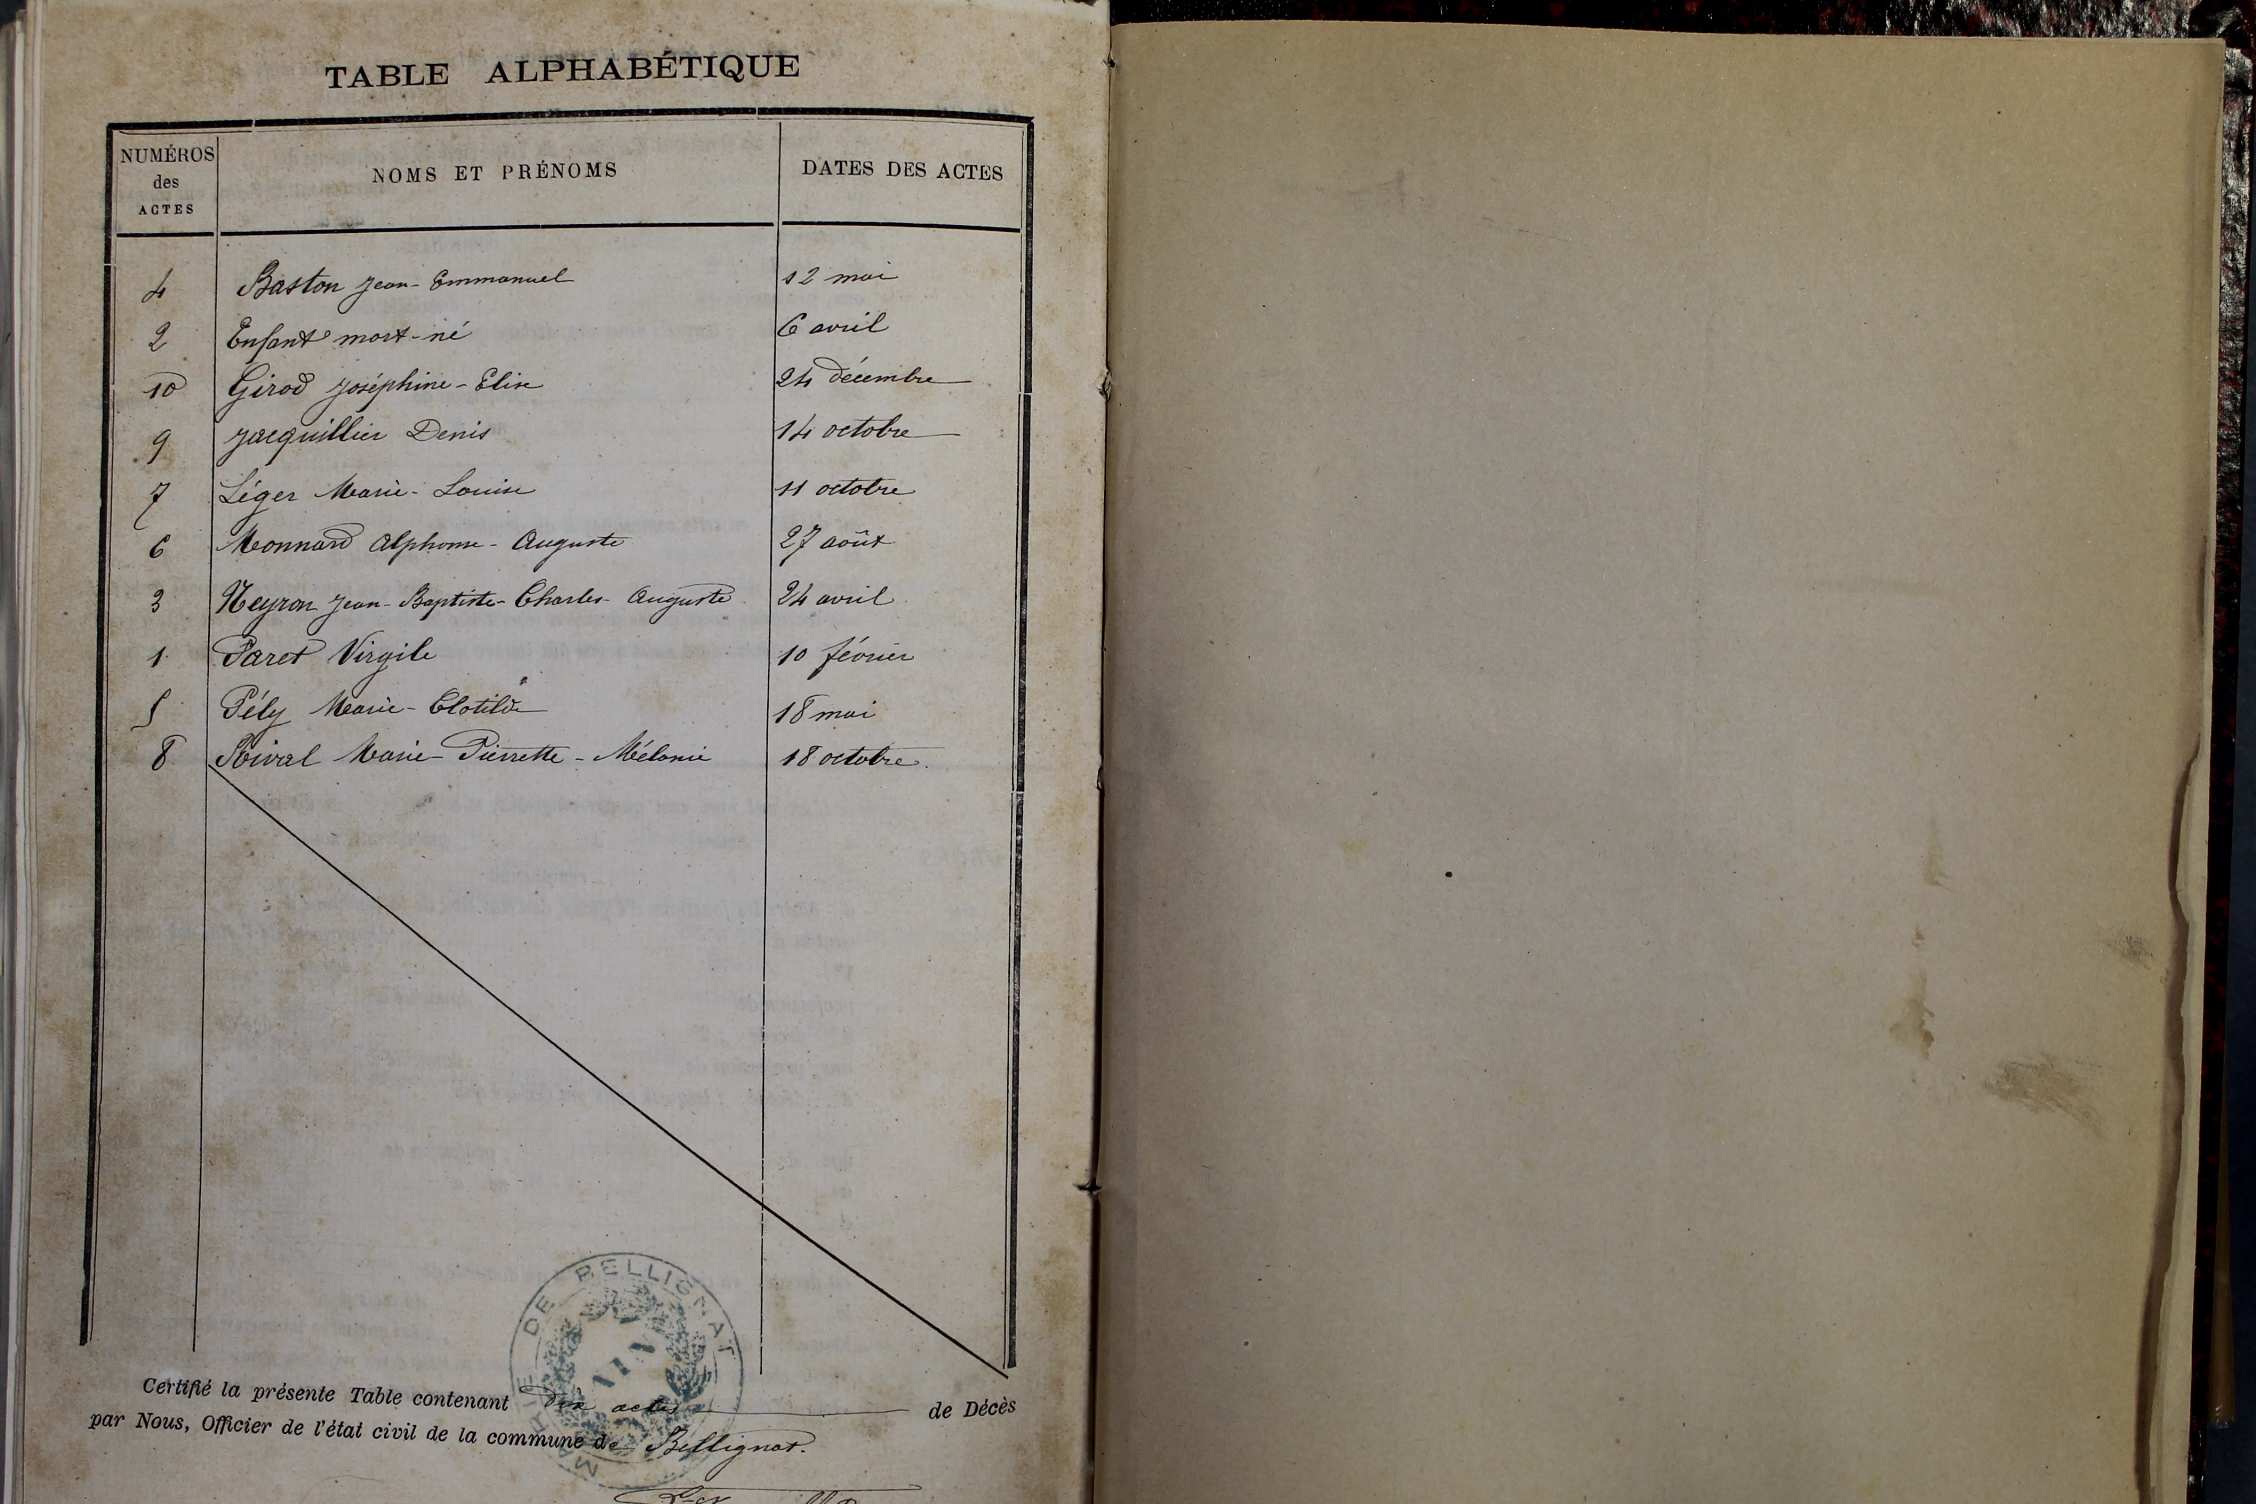 TABLE ALPHABÉTIQUE
NUMÉROS des ACTES NOMS ET PRÉNOMS DATES DES ACTES
4 Baston Jean-Emmanuel 12 mai
2 Enfant mort-né 6 avril
10 Girod Joséphine-Elise 24 décembre
9 Jacquillier Denis 14 octobre
7 Léger Marie-Louise 11 octobre
6 Monnard Alphonse-Auguste 27 août
3 Neyron Jean-Baptiste-Charles-Auguste 24 avril
1 Paret Virgile 10 février
5 Pély Marie-Clotilde 18 mai
8 Rival Marie-Pierrette-Mélanie 18 octobre.
MAIRIE DE BELLIGNAT
AIN
Certifié la présente Table contenant dix actes de Décès
par Nous, Officier de l'état civil de la commune de Bellignat.